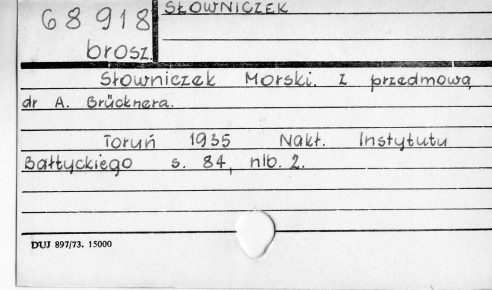 68918
brosz.
SŁOWNICZEK
Słowniczek Morski. Z przedmową
dr A. Brücknera.
Toruń 1935 Nakł. Instytutu
Bałtyckiego s. 84, nlb. 2.
DUJ 897/73. 15000